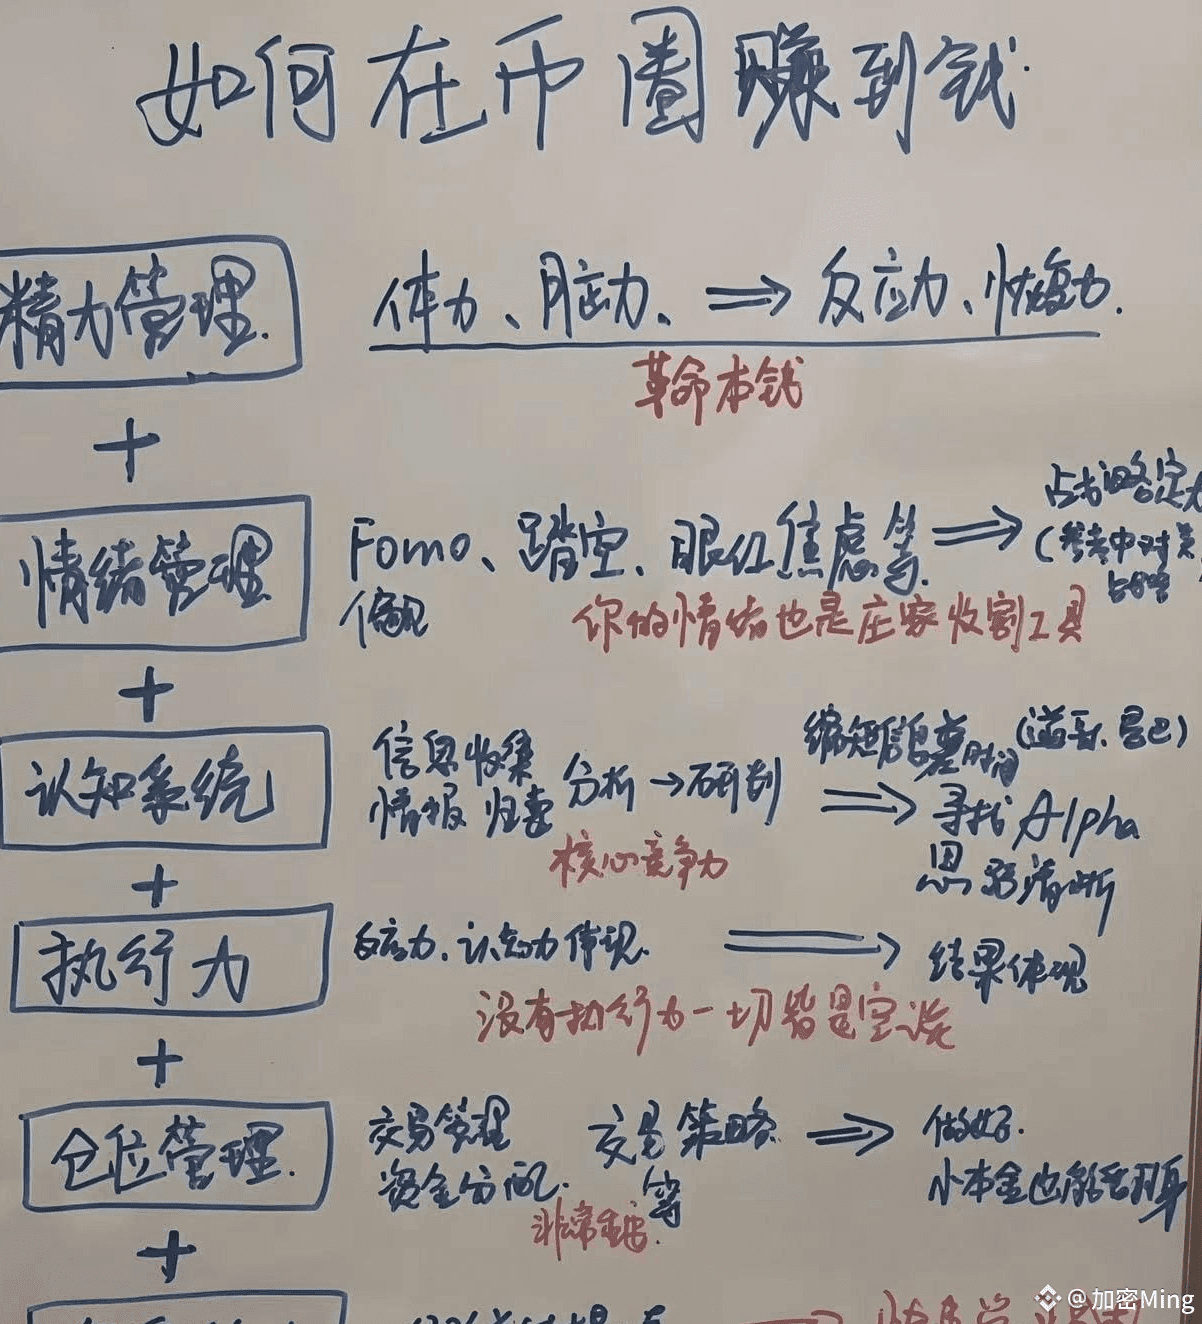 如何在币圈赚到钱
精力管理.
体力、脑力、⇒ 反应力、恢复力.
革命本钱
+
情绪管理
Fomo、踏空、眼红焦虑等.
偏见
⇒
(参考中对美
你的情绪也是庄家收割工具
+
认知系统
信息收集
情报 归类
分析→研判
⇒
缩短信息差时间
寻找Alpha
思路清晰
核心竞争力
+
执行力
反应力、认知力体现. ⇒ 结果体现
没有执行力一切皆是空谈
+
仓位管理.
交易管理
资金分配.
交易策略
等
⇒
做好.
小本金也能翻身
非常重要.
+
@加密Ming